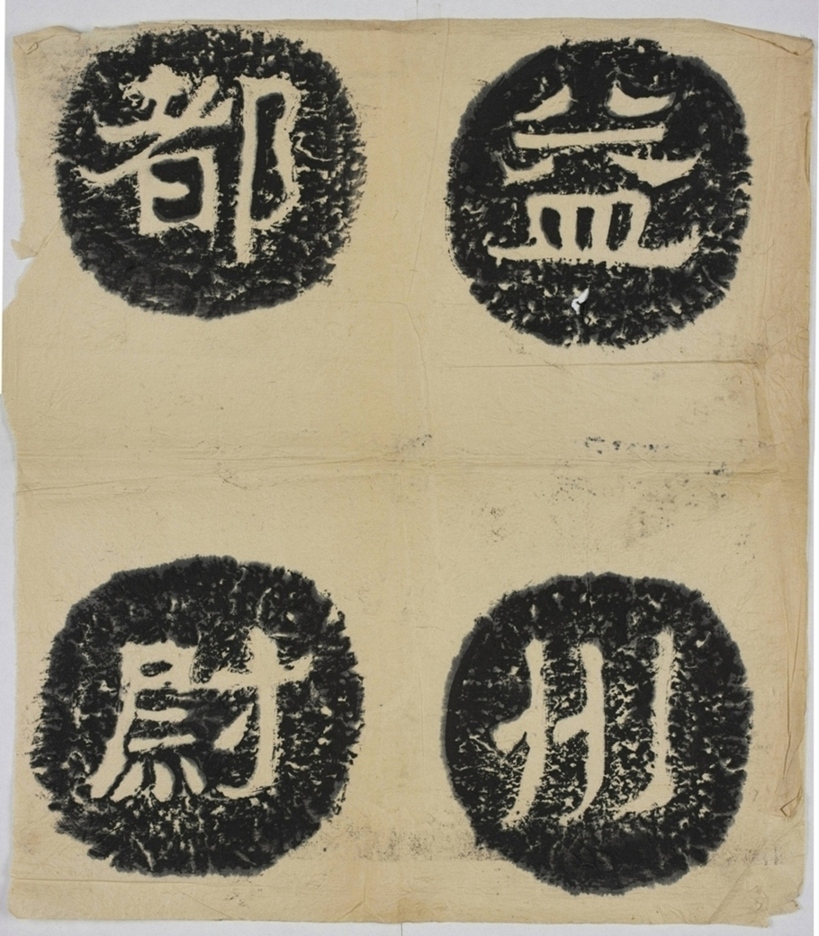 益州
都尉